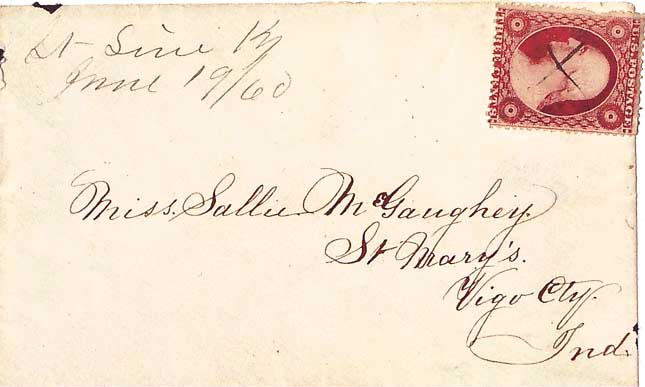 St Line Ky
June 19/60
U.S. POSTAGE
Miss. Sallie McGaughey.
St Mary's.
Vigo Cty.
Ind.